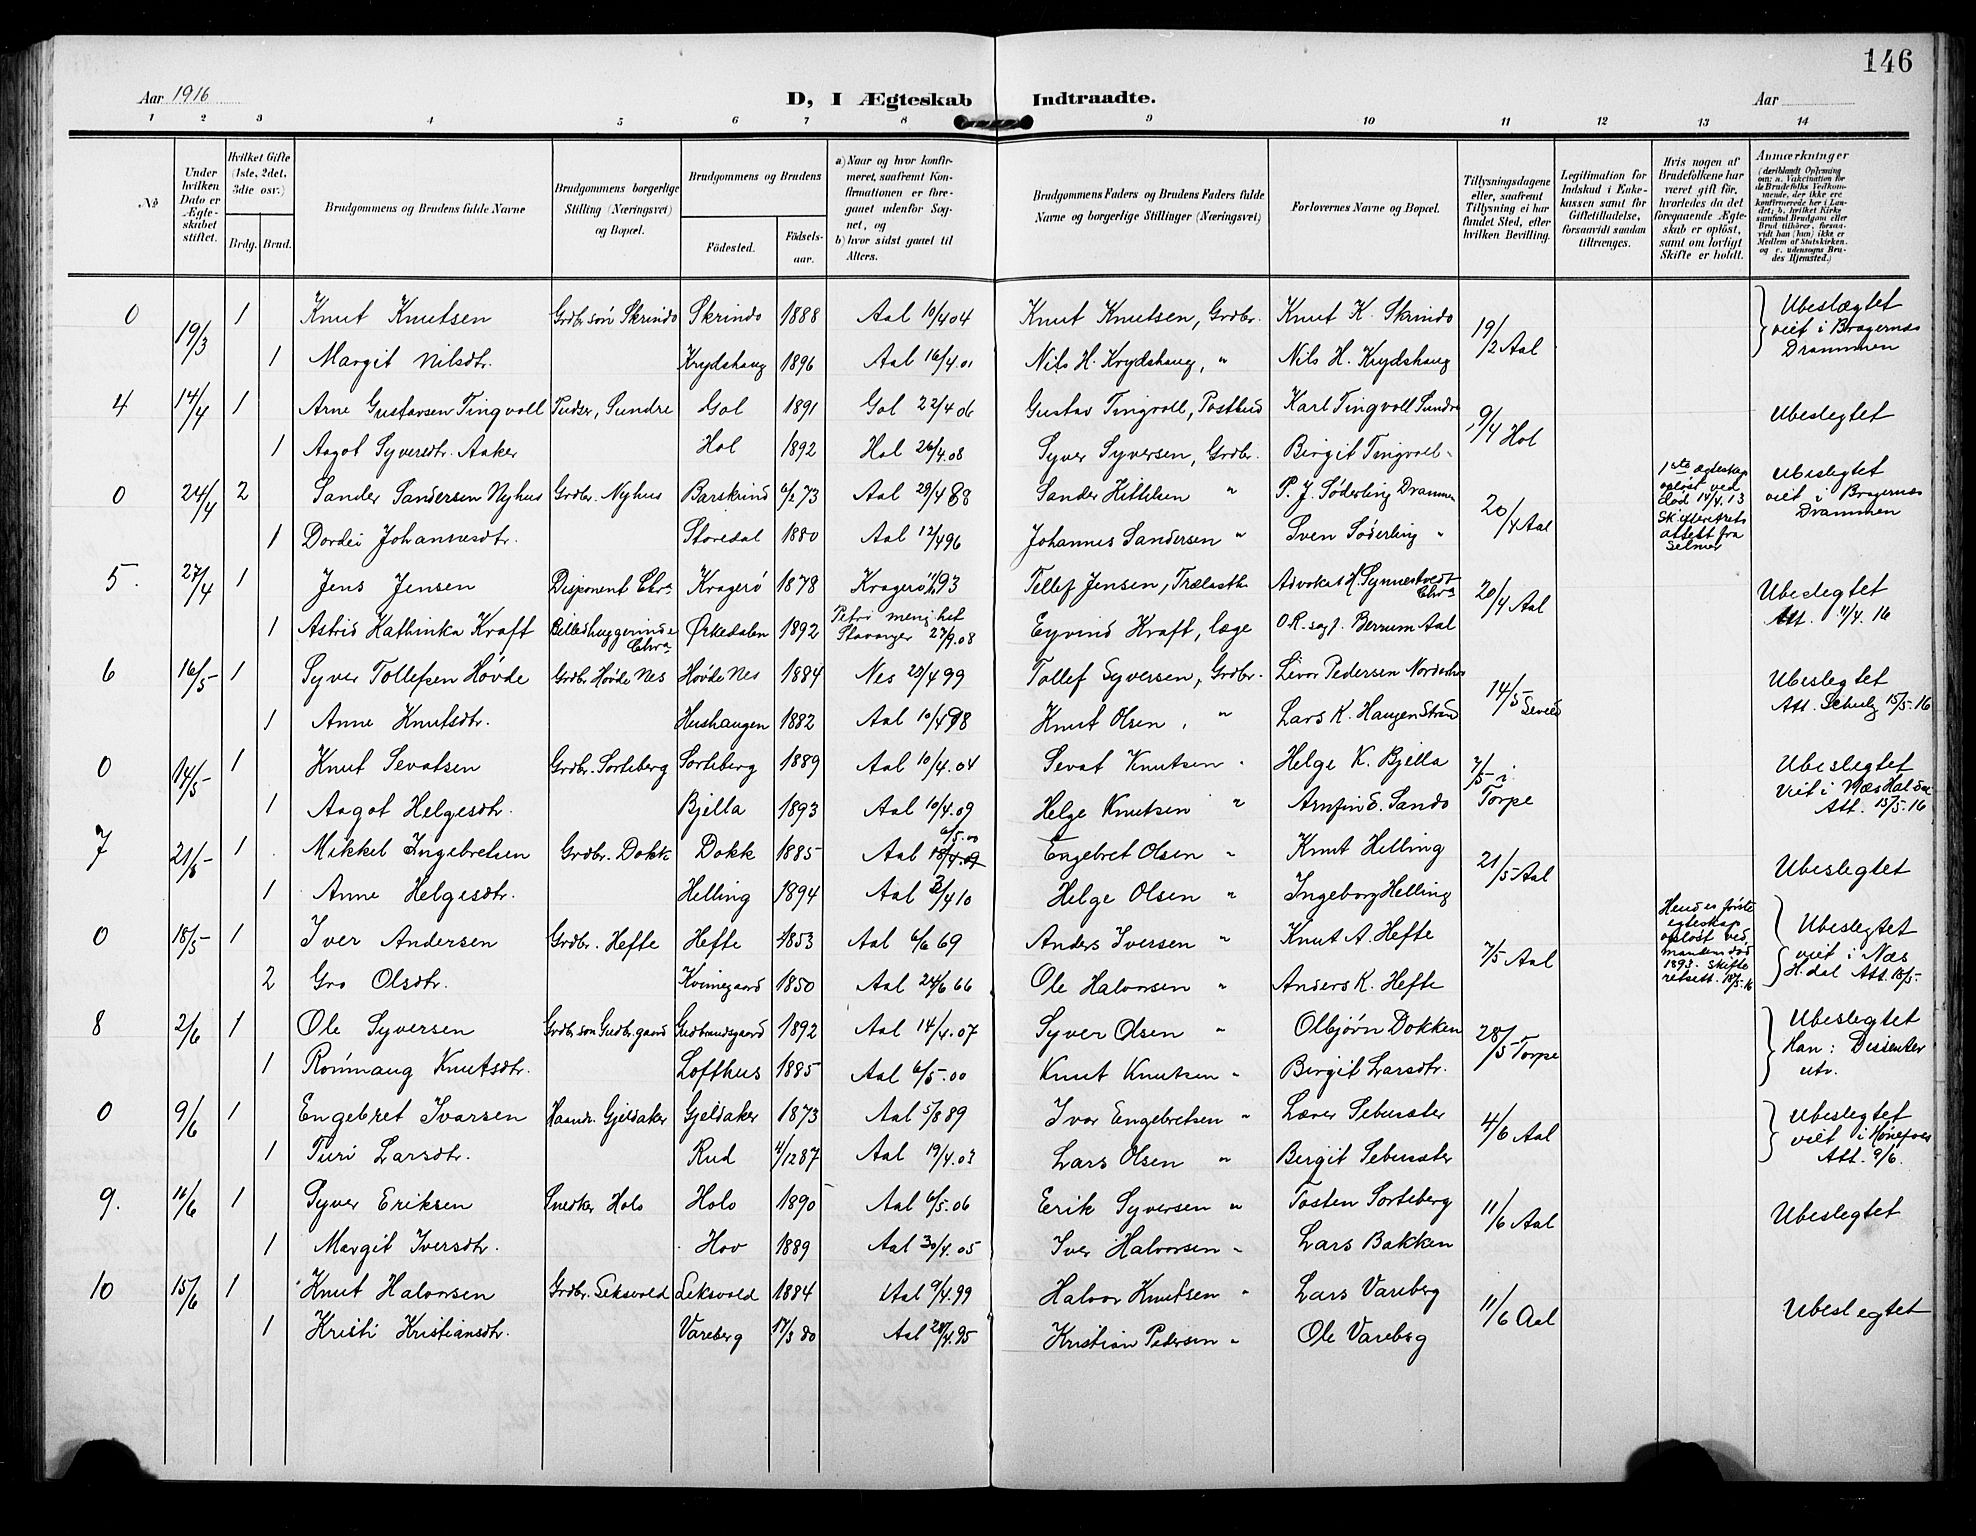 146
Aar 1916
D, I Ægteskab Indtraadte.
Aar
1 2 3 4 5 6 7 8 9 10 11 12 13 14
No
Under hvilken Dato er Ægteskabet stiftet.
Hvilket Gifte (1ste, 2det, 3die osv.)
Brdg. Brud.
Brudgommens og Brudens fulde Navne
Brudgommens borgerlige Stilling (Næringsvei) og Bopæl.
Brudgommens og Brudens
Fødested. Fødselsaar.
a) Naar og hvor konfirmeret, saafremt Konfirmationen er foregaaet udenfor Sognet, og
b) hvor sidst gaaet til Alters.
Brudgommens Faders og Brudens Faders fulde Navne og borgerlige Stillinger (Næringsvei)
Forlovernes Navne og Bopæl.
Tillysningsdagene eller, saafremt Tillysning ei har fundet Sted, efter hvilken Bevilling.
Legitimation for Indskud i Enkekassen samt for Giftetilladelse, forsaavidt saadan tiltrænges.
Hvis nogen af Brudefolkene har været gift før, hvorledes da det foregaaende Ægteskab er opløst, samt om lovligt Skifte er holdt.
Anmærkninger
0 19/3 1 Knut Knutsen Grdbr. søn Skrindo Skrindo 1888 Aal 10/4 04 Knut Knutsen, Grdbr. Knut K. Skrindo 19/2 Aal Ubeslægtet viet i Bragernæs Drammen
1 Margit Nilsdtr. Krydshaug 1896 Aal 16/4.01 Nils H. Krydshaug, " Nils H. Krydshaug
4 14/4 1 Arne Gustavsen Tingvoll Pudser, Sundre Gol 1891 Gol 22/4 06 Gustav Tingvoll, Postbud Karl Tingvoll Sundre 9/4 Hol Ubeslegtet
1 Aagot Syversdtr. Aaker Hol 1892 Hol 26/4.08 Syver Syversen, Grdbr. Birgit Tingvoll "
0 24/4 2 Sander Sandersen Nyhus Grdbr. Nyhus Barskrind 6/2 73 Aal 29/4 88 Sander Kittilsen " P. J. Söderling Drammen 20/4 Aal 1ste ægteskap opløst ved död 14/4.13 Skifterettens attest fra Selmer Ubeslegtet viet i Bragernæs Drammen
1 Dordei Johannesdtr. Storedal 1880 Aal 12/4 96 Johannes Sandersen " Sven Söderling "
5. 27/4 1 Jens Jensen Disponent Chr.a Kragerö 1878 Kragerö 93 Tellef Jensen, Trælasth. Advokat H. Synnestvedt Chr.a 20/4 Aal Ubeslegtet Att. 11/4. 16
1 Astrid Kathinka Kraft Billedhuggerinde Chr.a Ørkedalen 1892 Petri menighet Stavanger 27/9.08 Eyvind Kraft, læge O.R. sagf. Berrum Aal
6 16/5 1 Syver Tollefsen Hövde Grdbr. Hövde Nes Hövde Nes 1884 Nes 23/4 99 Tollef Syversen, Grdbr. Levor Pedersen 14/5 Ubeslegtet Att. Schulz 15/5-16
1 Anne Knutsdtr. Hushaugen 1882 Aal 10/4 98 Knut Olsen, " Lars K. Haugen Strand
0 14/5 1 Knut Sevatsen Grdbr. Sorteberg Sorteberg 1889 Aal 10/4.04 Sevat Knutsen " Helge K. Bjella 7/5 i Torpe Ubeslegtet Viet i Næs Hal. Att. 15/5.16
1 Aagot Helgesdtr. Bjella 1893 Aal 10/4.09 Helge Knutsen " Arnfin E. Sando
7 21/5 1 Mikkel Ingebretsen Grdbr. Dokk Dokk 1885 Aal 6/5.00 Engebret Olsen " Knut Helling 21/5 Aal Ubeslegtet
1 Anne Helgesdtr. Helling 1894 Aal 3/4 10 Helge Olsen " Ingeborg Helling
0 18/5 1 Iver Andersen Grdbr. Hefte Hefte 1853 Aal 6/6 69 Anders Iversen " Knut A. Hefte 7/5 Aal Hendes første egteskap opløst ved mandens död 1893. Skifteretsatt. 18/5.16 Ubeslegtet viet i Næs H.dal Att. 18/5.
2 Gro Olsdtr. Kvinnegaard 1850 Aal 24/6 66 Ole Halvorsen " Anders K. Hefte
8 2/6 1 Ole Syversen Grdbr. søn Gudbr.gaard Gudbrandsgaard 1892 Aal 14/4.07 Syver Olsen " Olbjørn Dokken 28/5 Torpe Ubeslegtet Han: Dissenter utr.
1 Rønnaug Knutsdtr. Lofthus 1885 Aal 6/5.00 Knut Knutsen " Birgit Larsdtr.
0 9/6 1 Engebret Ivarsen Haandv. Gjeldaker Gjeldaker 1873 Aal 5/8 89 Ivar Engebretsen " Læver Sebusæter 4/6 Aal Ubeslegtet viet i Hønefoss Att. 9/6.
1 Turi Larsdtr. Rud 4/12 87 Aal 19/4.03 Lars Olsen " Bergit Sebusæter
9. 11/6 1 Syver Eriksen Snedker Holo Holo 1890 Aal 6/5.06 Erik Syversen " Tosten Sorteberg 11/6 Aal Ubeslegtet
1 Margit Iversdtr. Hov 1889 Aal 30/4.05 Iver Halvorsen " Lars Bakken
10 15/6 1 Knut Halvorsen Grdbr. Seksvold Leksvold 1884 Aal 9/4.99 Halvor Knutsen " Lars Vareberg 11/6 Aal Ubeslegtet
1 Kristi Kristiansdtr. Vareberg 17/3 80 Aal 28/4.95 Kristian Pedersen " Ole Vareberg